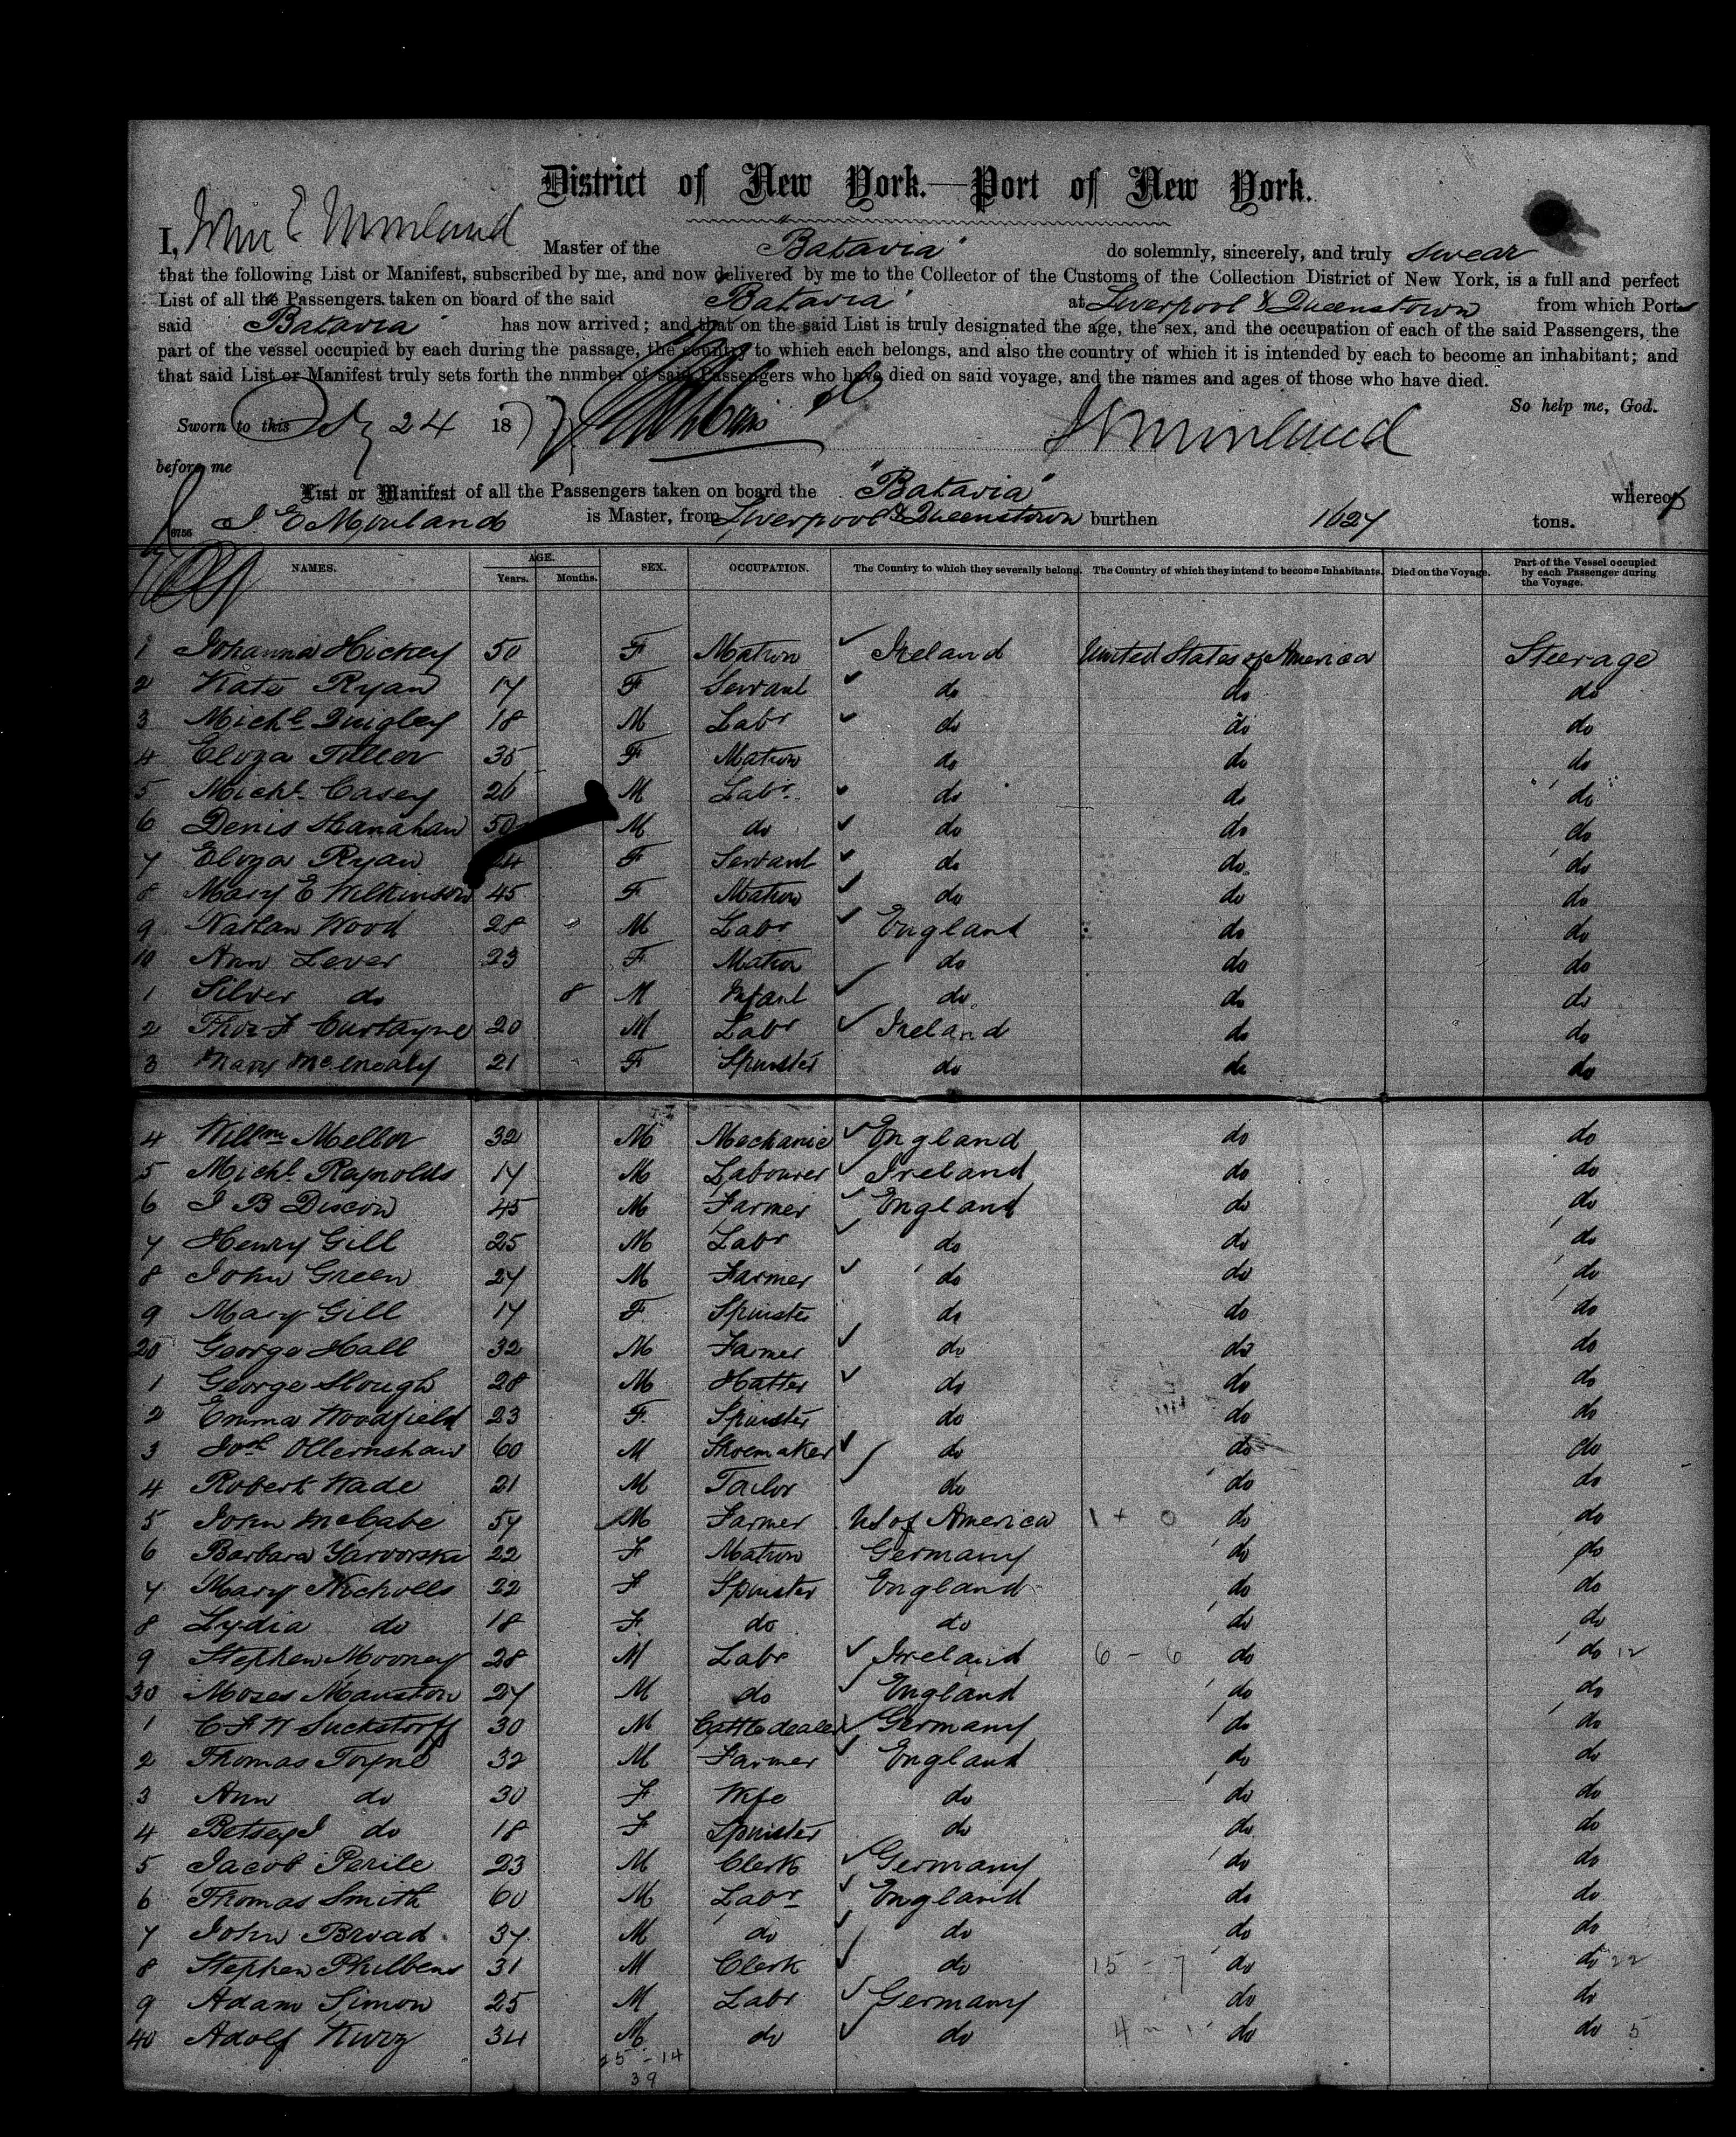 District of New York.—Port of New York.
I, Master of the "Batavia" do solemnly, sincerely, and truly swear
that the following List or Manifest, subscribed by me, and now delivered by me to the Collector of the Customs of the Collection District of New York, is a full and perfect
List of all the Passengers taken on board of the said "Batavia" at Liverpool & Queenstown from which Ports
said "Batavia" has now arrived; and that on the said List is truly designated the age, the sex, and the occupation of each of the said Passengers, the
part of the vessel occupied by each during the passage, the country to which each belongs, and also the country of which it is intended by each to become an inhabitant; and
that said List or Manifest truly sets forth the number of said Passengers who have died on said voyage, and the names and ages of those who have died.
So help me, God.
Sworn to this 24 18
before me
List or Manifest of all the Passengers taken on board the "Batavia" whereof
J E Mouland is Master, from Liverpool & Queenstown burthen 1627 tons.
6756
NAMES. AGE. Years. Months. SEX. OCCUPATION. The Country to which they severally belong. The Country of which they intend to become Inhabitants. Died on the Voyage. Part of the Vessel occupied by each Passenger during the Voyage.
1 Johanna Hickey 50 F Matron Ireland United States of America Steerage
2 Kate Ryan 17 F Servant do do do
3 Michl Quigley 18 M Labr do do do
4 Eliza Fuller 35 F Matron do do do
5 Michl Casey 26 M Labr do do do
6 Denis Hanahan 50 M do do do do
7 Eliza Ryan 24 F Servant do do do
8 Mary E Wilkinson 45 F Matron do do do
9 Nathan Wood 28 M Labr England do do
10 Ann Lever 23 F Matron do do do
1 Silver do 8 M Infant do do do
2 Thos F Curtayne 20 M Labr Ireland do do
3 Mary 21 F Spinster do do do
4 Willm Mellor 32 M Mechanic England do do
5 Michl Reynolds 17 M Labourer Ireland do do
6 J B Discon 45 M Farmer England do do
7 Henry Gill 25 M Labr do do do
8 John Green 27 M Farmer do do do
9 Mary Gill 17 F Spinster do do do
20 George Hall 32 M Farmer do do do
1 George Slough 28 M Hatter do do do
2 Emma Woodfield 23 F. Spinster do do do
3 Josh Ollernshaw 60 M Shoemaker do do do
4 Robert Wade 21 M Tailor do do do
5 John McCabe 57 M Farmer US of America 1 + 0 do do
6 Barbara Yarvorski 22 F Matron Germany do do
7 Mary Nicholls 22 F Spinster England do do
8 Lydia do 18 F do do do do
9 Stephen Mooney 28 M Labr Ireland 6 - 6 do do 12
30 Moses Mauston 27 M do England do do
1 C F W Suckstorff 30 M Cattledealer Germany do do
2 Thomas Toyne 32 M Farmer England do do
3 Ann do 30 F Wife do do do
4 Betsey J do 18 F Spinster do do do
5 Jacob Perile 23 M Clerk Germany do do
6 Thomas Smith 60 M Labr England do do
7 John Broad 37 M do do do do
8 Stephen Philbens 31 M Clerk do 15 - 7 do do 22
9 Adam Simon 25 M Labr Germany do do
40 Adolf Kurz 34 M do do 4 - 1 do do 5
25 - 14
39